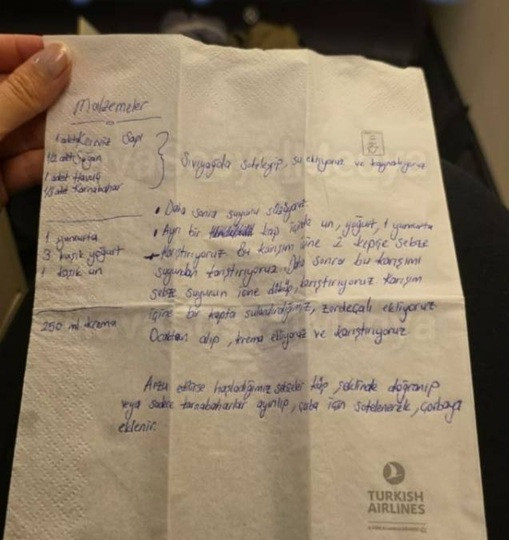 Malzemeler
1 adet Kereviz Sapı
1/2 adet Soğan
1 adet Havuç
1/3 adet Karnabahar
Sıvıyağda soteleyip, su ekliyoruz ve kaynatıyoruz
• Daha sonra suyunu süzüyoruz
• Ayrı bir kap içinde un, yoğurt, 1 yumurta
Karıştırıyoruz Bu karışım içine 2 kepçe sebze
suyundan karıştırıyoruz Daha sonra bu karışımı
sebze suyunun içine döküp, karıştırıyoruz Karışım
içine bir kapta sulandırdığımız, zerdeçalı ekliyoruz
Ocaktan alıp, krema ekliyoruz ve karıştırıyoruz
1 yumurta
3 kaşık yoğurt
1 kaşık un
250 ml krema
Arzu edilirse haşladığımız sebzeler küp, şeklinde doğranıp
veya sadece karnabaharlar ayrılıp, çorba için sotelenerek, çorbaya
eklenir.
TURKISH
AIRLINES